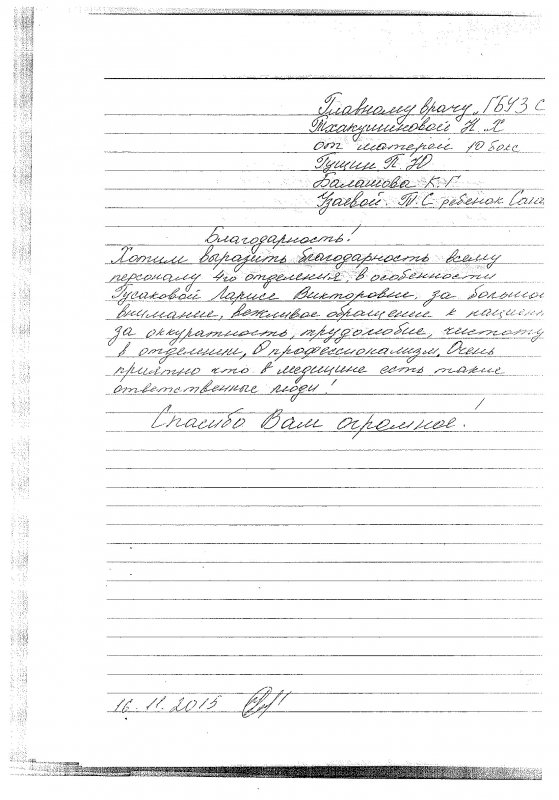 Главному врачу „ГБУЗ С
Тхакушиновой Н. Х
от матерей 10 бокс
Гущин П. Ю
Балашова К. Г
Узаевой. П. С ребенок
Благодарность!
Хотим выразить благодарность всему
персоналу 4го отделения, в особенности
Гусаковой Ларисе Викторовне, за большое
внимание, вежливое обращение к пациен
за аккуратность, трудолюбие, чистоту
в отделении, профессионализм. Очень
приятно что в медицине есть такие
ответственные люди!
Спасибо Вам огромное!
16. 11. 2015